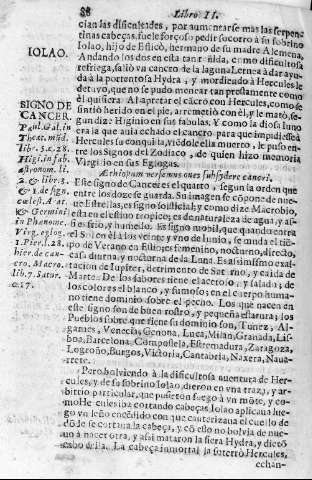 88 Libro II.
cian las dificultades, por aumentarse mas las serpen
tinas cabeças, fuele forçoso pedir socorro a su sobrino
IOLAO. Iolao, hijo de Esticò, hermano de su madre Alcmena,
Andando los dos en esta tan reñida, como dificultosa
refriega, saliò vn cancro de la laguna Lernea à dar ayu-
da à la portentosa Hydra, y mordiendo à Hercules le
detuyo, que no se pudo menear tan prestamente como
SIGNO DE CANCER. èl quisiera. Al apretar el cācro con Hercules, como se
sintiò herido en el pie, arremetiò con èl, y le matò, se-
gun dize Higinio en sus fabulas. Y como la diosa Iuno
era la que auia echado el cancro, para que impidiesse à
Hercules su conquista, viēdole ella muerto, le puso en-
tre los Signos del Zodiaco, de quien hizo memoria
Virgilio en sus Eglogas.
Este Signo de Cancer es el quarto, segun la orden que
entre los doze se guarda. Su imagen se cōpone de nue-
ue Estrellas, segun Philosticio, y como dize Macrobio,
esta en el estiuo tropico; es de naturaleza de agua, y assi
es frio, y humedo. Es signo mobil, que quando entra
el Sol en èl à los veinte y vno de Iunio, se muda el tiē-
po de Verano en Estio; es femenino, nocturno, directo,
casa diurna, y nocturna de la Luna. Es assimismo exal-
tacion de Iupiter, detrimento de Saturno, y caida de
Marte. De los sabores tiene el acetoso, y salada; de
los colores el blanco, y fumoso; en el cuerpo huma-
no tiene dominio sobre el pecho. Los que nacen en
este signo son de buen rostro, y pequeña estatura; los
Pueblos sobre que tiene su dominio son, Tunez, Al-
Venecia, Genoua, Luca, Milan, Granada, Lis-
boa, Barcelona, Cōpostela, Estremadura, Zaragoza,
Logroño, Burgos, Victoria, Cantabria, Naxera, Naua-
rrete.
Pero boluiendo à la dificultosa auentura de Her-
cules, y de su sobrino Iolao, dieron en vna traza, y ar-
bitrio particular, que pusieron fuego à vn mōte, y co-
mo Hercules iba cortando cabeças, Iolao aplicaua lue-
go vn leño encēdido con que cauterizaua el cuello de
dōde se cortaua la cabeça, y cō esto no bolvia de nue-
uo à nacer otra, y assi mataron la fiera Hydra, y dictō
cabo della. La cabeça inmortal la soterrò Hercules,
echan-